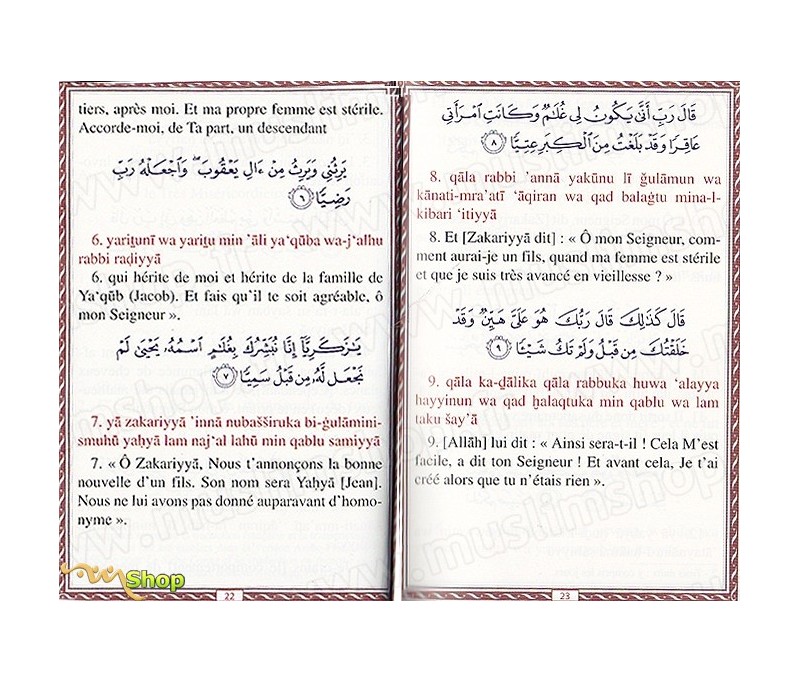 tiers, après moi. Et ma propre femme est stérile.
Accorde-moi, de Ta part, un descendant
يَرِثُنِى وَيَرِثُ مِنْ ءَالِ يَعْقُوبَ ۖ وَٱجْعَلْهُ رَبِّ
رَضِيًّا ٦
6. yariṯunī wa yariṯu min ’āli ya‘qūba wa-j‘alhu
rabbi raḍiyyā
6. qui hérite de moi et hérite de la famille de
Ya‘qūb (Jacob). Et fais qu’il te soit agréable, ô
mon Seigneur ».
يَـٰزَكَرِيَّآ إِنَّا نُبَشِّرُكَ بِغُلَـٰمٍ ٱسْمُهُۥ يَحْيَىٰ لَمْ
نَجْعَل لَّهُۥ مِن قَبْلُ سَمِيًّا ٧
7. yā zakariyyā ’innā nubašširuka bi-ġulāmini-
smuhū yaḥyā lam naj‘al lahū min qablu samiyyā
7. « Ô Zakariyyā, Nous t’annonçons la bonne
nouvelle d’un fils. Son nom sera Yaḥyā [Jean].
Nous ne lui avons pas donné auparavant d’homo-
nyme ».
Shop
22
قَالَ رَبِّ أَنَّىٰ يَكُونُ لِى غُلَـٰمٌ وَكَانَتِ ٱمْرَأَتِى
عَاقِرًا وَقَدْ بَلَغْتُ مِنَ ٱلْكِبَرِ عِتِيًّا ٨
8. qāla rabbi ’annā yakūnu lī ğulāmun wa
kānati-mra’atī ‘āqiran wa qad balaġtu mina-l-
kibari ‘itiyyā
8. Et [Zakariyyā dit] : « Ô mon Seigneur, com-
ment aurai-je un fils, quand ma femme est stérile
et que je suis très avancé en vieillesse ? »
قَالَ كَذَٰلِكَ قَالَ رَبُّكَ هُوَ عَلَىَّ هَيِّنٌ وَقَدْ
خَلَقْتُكَ مِن قَبْلُ وَلَمْ تَكُ شَيْـًٔا ٩
9. qāla ka-ḏālika qāla rabbuka huwa ‘alayya
hayyinun wa qad ḫalaqtuka min qablu wa lam
taku šay’ā
9. [Allāh] lui dit : « Ainsi sera-t-il ! Cela M’est
facile, a dit ton Seigneur ! Et avant cela, Je t’ai
créé alors que tu n’étais rien ».
23